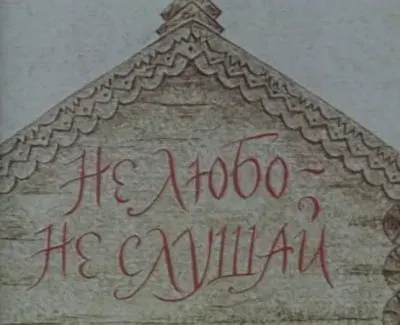 Не любо –
не слушай